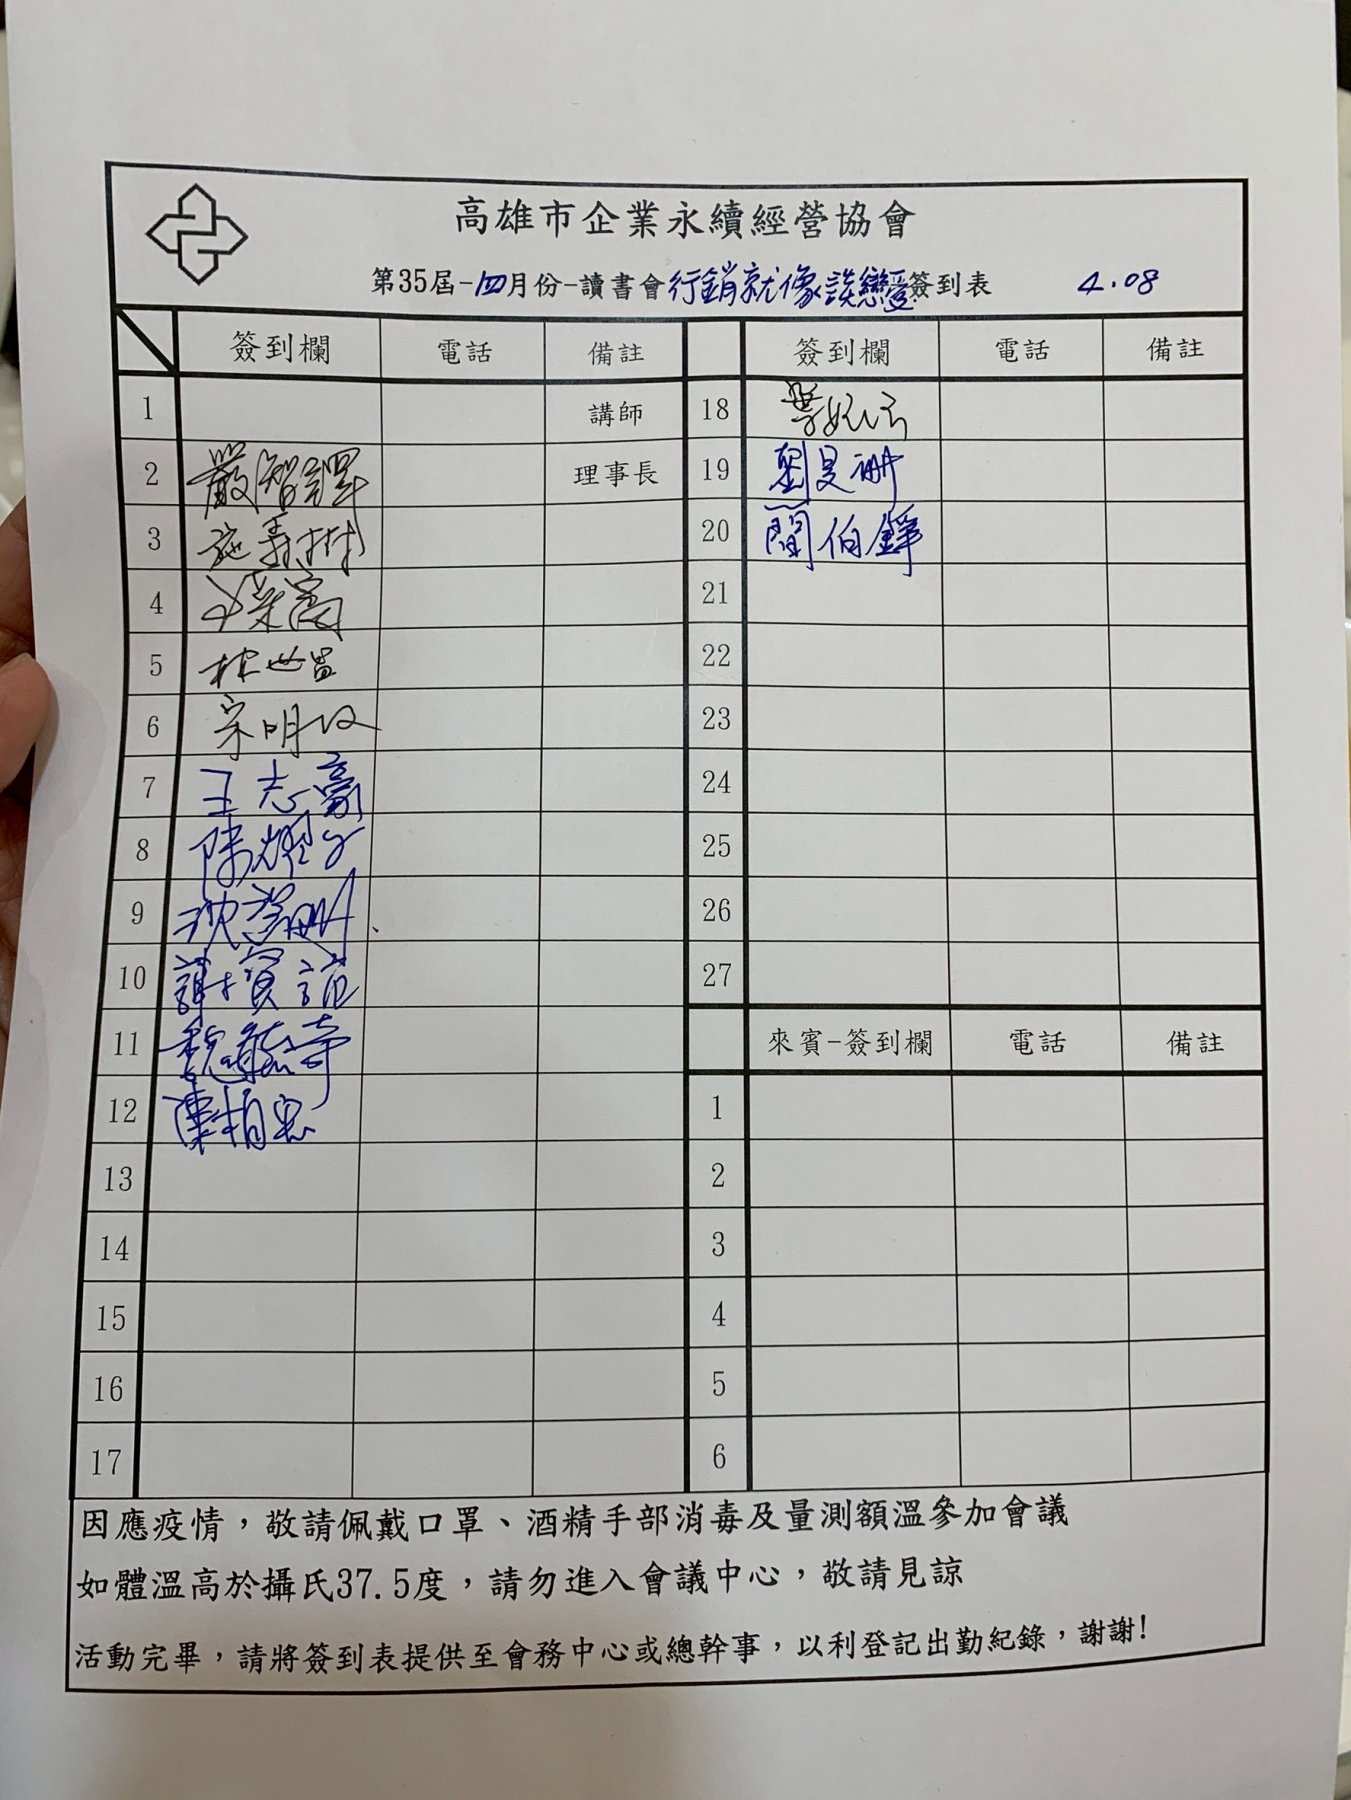 高雄市企業永續經營協會
第35屆-四月份-讀書會行銷就像談戀愛簽到表 4.08
簽到欄 電話 備註 簽到欄 電話 備註
1 講師 18
2 嚴智譯 理事長 19 劉旻珊
3 施 樹 20 閻伯錚
4 21
5 林世 22
6 宋明 23
7 王志豪 24
8 陳耀 25
9 沈 26
10 謝寶誼 27
11 魏 奇 來賓-簽到欄 電話 備註
12 陳柏宏 1
13 2
14 3
15 4
16 5
17 6
因應疫情，敬請佩戴口罩、酒精手部消毒及量測額溫參加會議
如體溫高於攝氏37.5度，請勿進入會議中心，敬請見諒
活動完畢，請將簽到表提供至會務中心或總幹事，以利登記出勤紀錄，謝謝!